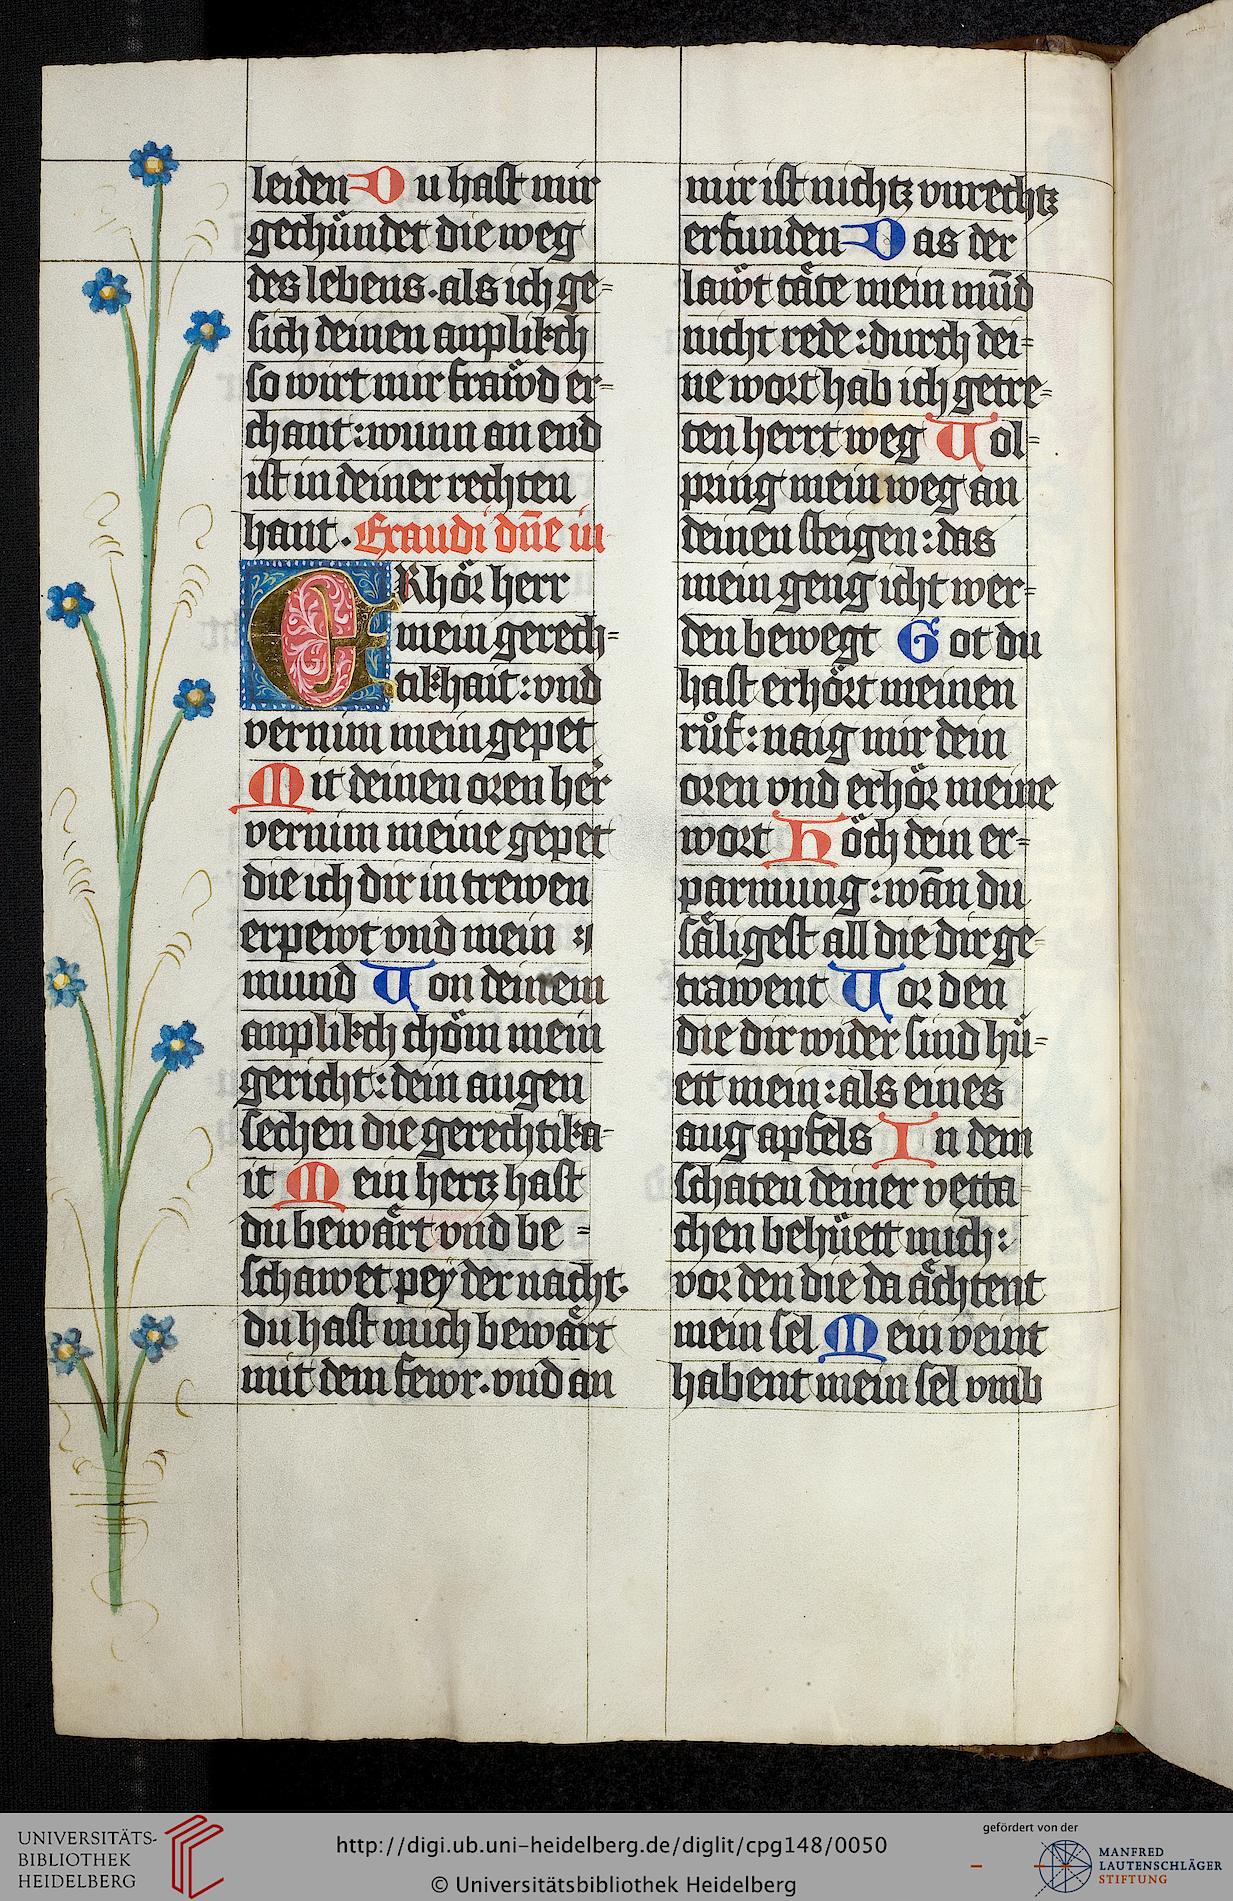 leiden Du hast mir
gechündet die weg
des lebens. als ich ge=
sich deinen anplikch
so wirt mir fräwd er=
chant: wunn an end
ist in deiner rechten
hant. Exaudi dn̄e iu
ERhör herr
mein gerech=
tikhait: vnd
vernim mein gepet
Mit deinen oren her
vernim meine gepet
die ich dir in trewen
erpewt vnd mein :
mund Von deinem
anplikch chöm mein
gericht: dein augen
sechen die gerechtika=
it Mein hertz hast
du bewärt vnd be =
schawet pey der nacht.
du hast mich bewärt
mit dem fewr. vnd an
mir ist nichtz vnrechtz
erfunden Das der
läwt täte mein mūd
nicht rede: durch dei=
ne wort hab ich getre=
ten herrt weg Vol=
pring mein weg an
deinen steigen: das
mein geng icht wer=
den bewegt Got du
hast erhört meinen
růf: naig mir dein
oren vnd erhör meine
wort Höch dein er=
parmung: wān du
säligest all die dir ge=
trawent Vor den
die dir wider sind hü=
ett mein: als eines
aug apfels In dem
schaten deiner vetta=
chen behüett mich:
vor den die da ächtent
mein sel Mein veint
habent mein sel vmb
UNIVERSITÄTS-
BIBLIOTHEK
HEIDELBERG
http://digi.ub.uni-heidelberg.de/diglit/cpg148/0050
© Universitätsbibliothek Heidelberg
gefördert von der
MANFRED
LAUTENSCHLÄGER
STIFTUNG